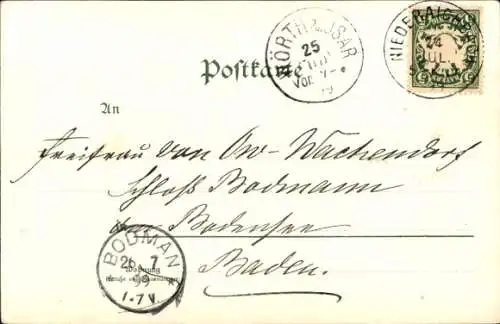 WÖRTH A. ISAR
25
JUL
VOR. 7-
NIEDERAICHBACH
24
JUL.
Postkarte
An
Freifrau von Ow-Wachendorf
Schloß Bodmann
Bodensee
Baden.
BODMAN
26. 7
98
1-7 N
Wohnung